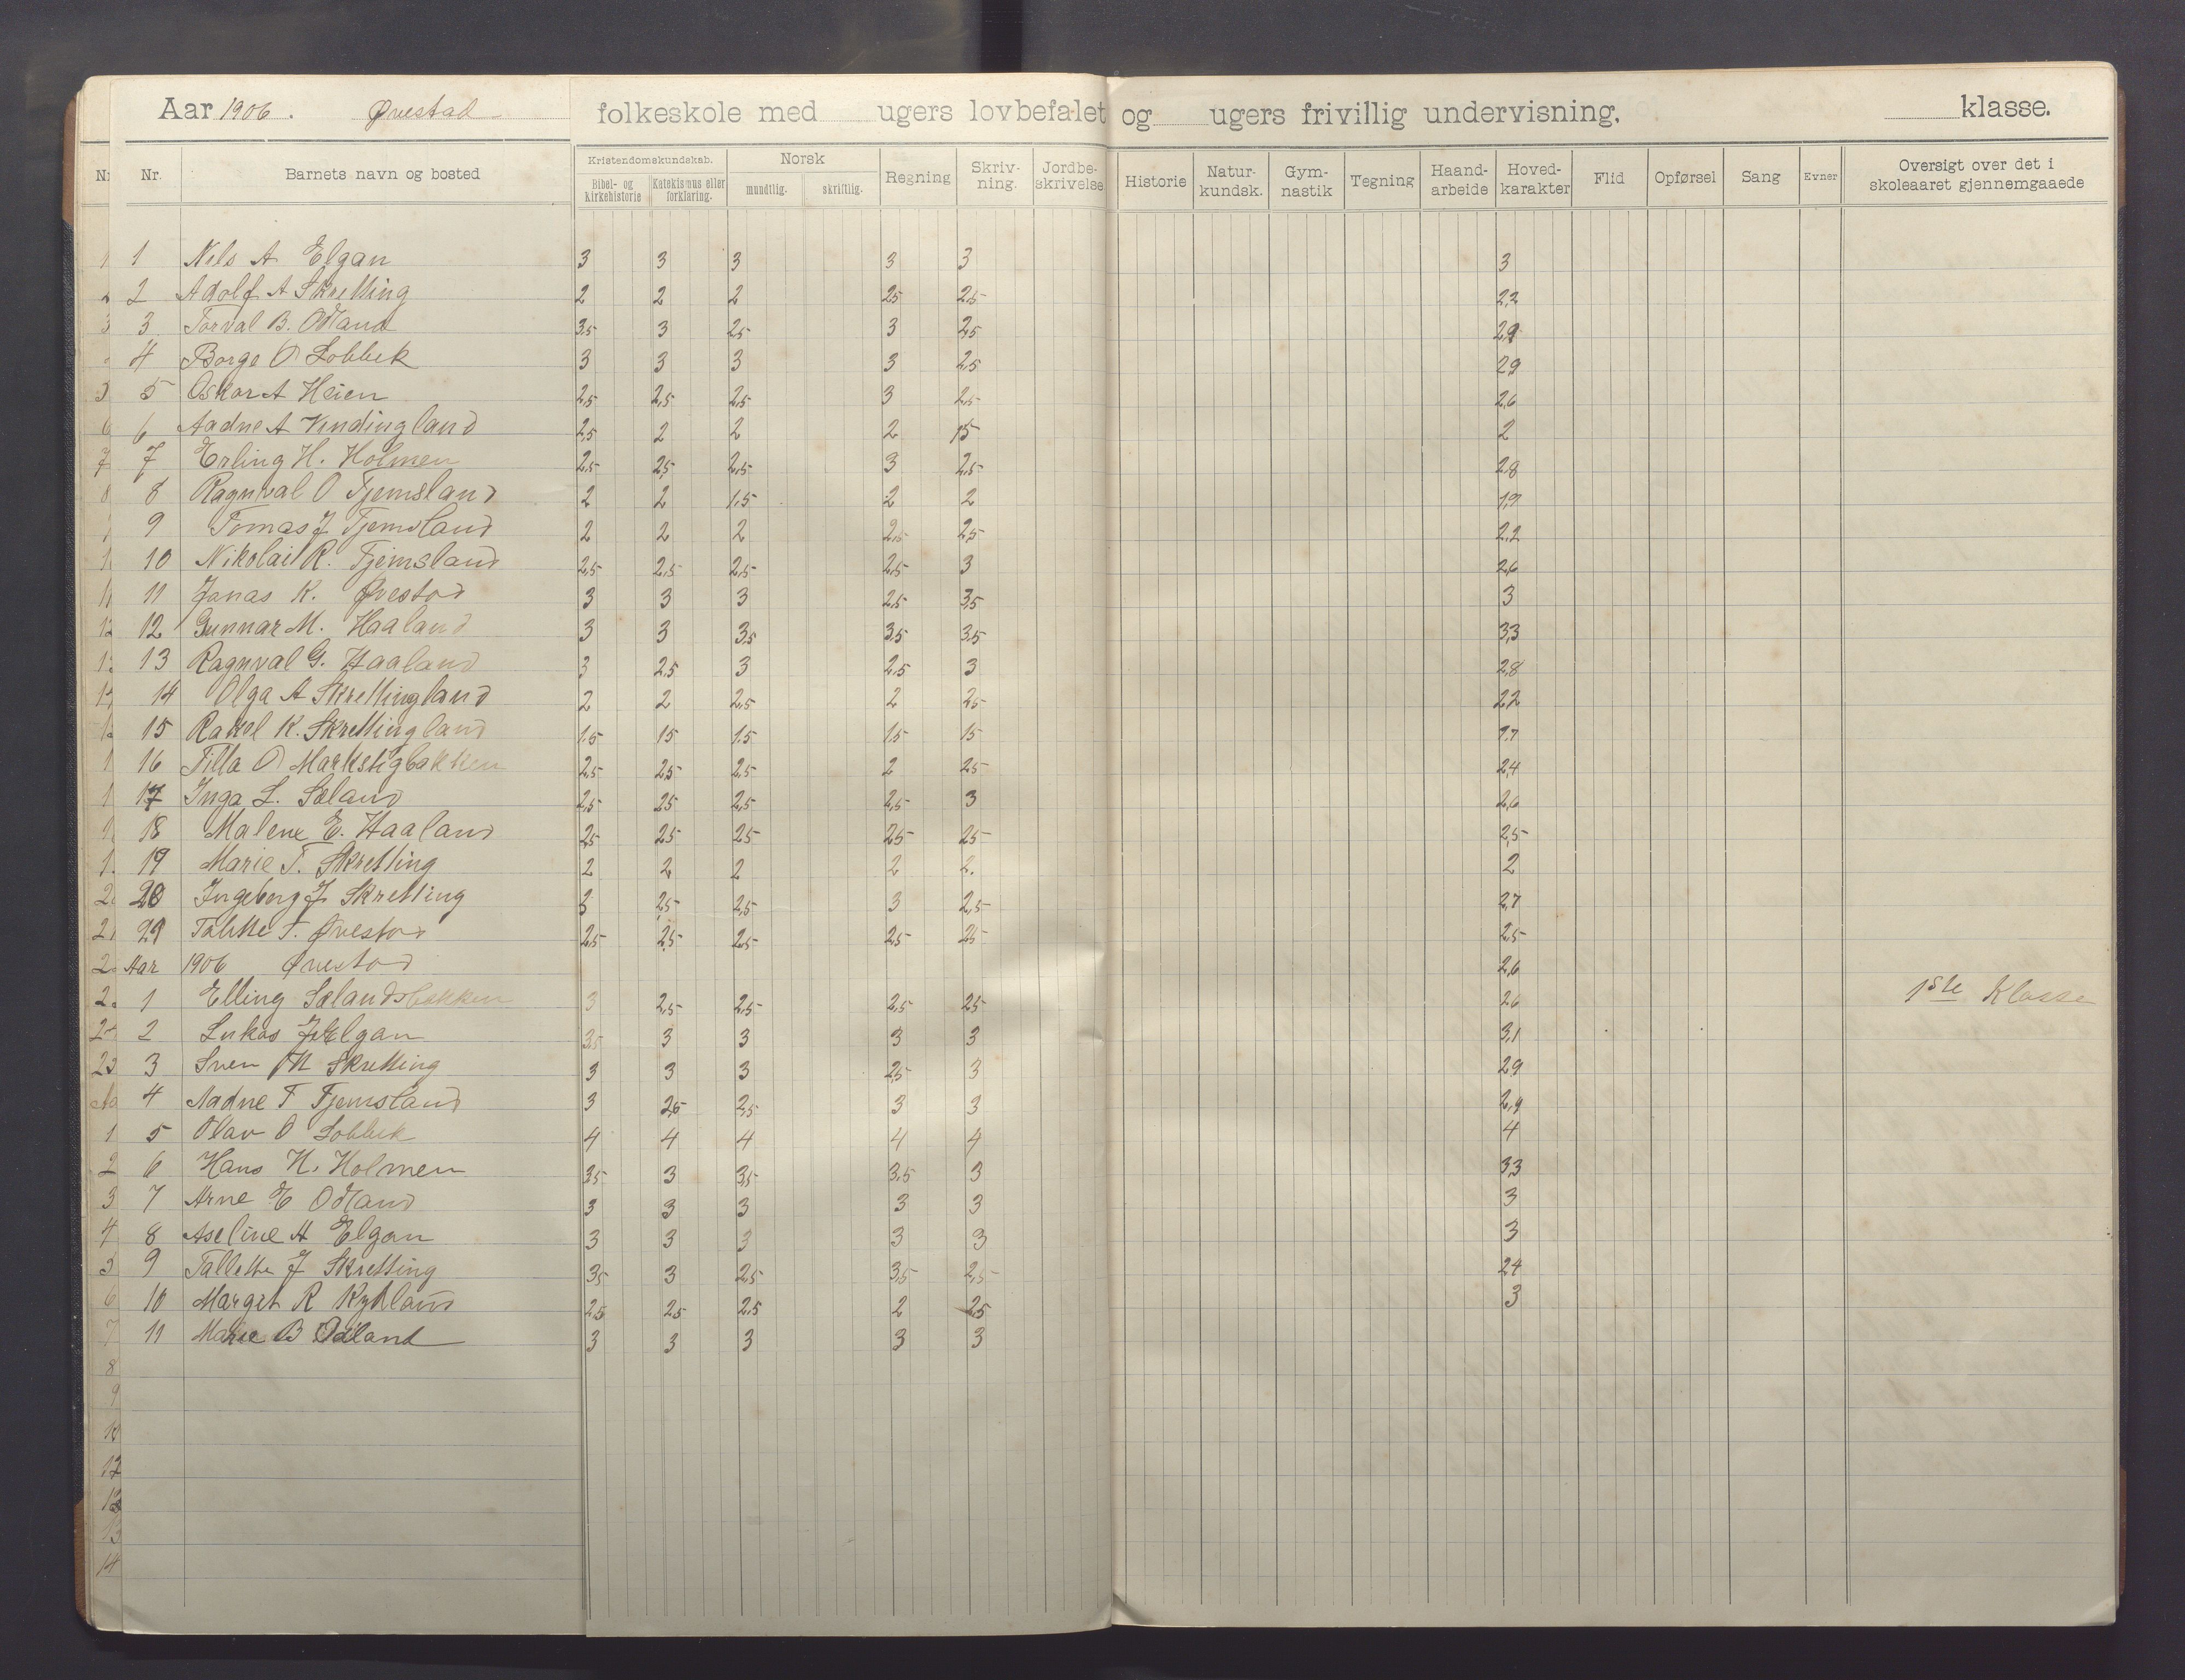 Aar 1906. Øvestad folkeskole med ugers lovbefalet og ugers frivillig undervisning. klasse.
Nr. Barnets navn og bosted Kristendomskundskab. Bibel- og Kirkehistorie Katekismus eller forklaring. Norsk mundtlig. skriftlig. Regning Skriv-ning. Jordbe-skrivelse Historie Natur-kundsk. Gym-nastik Tegning Haand-arbeide Hoved-karakter Flid Opførsel Sang Evner Oversigt over det i skoleaaret gjennemgaaede
1 Nels A Elgan 3 3 3 3 3 3
2 Adolf A Skretting 2 2 2 25 2,5 2,2
3 Torval B. Odland 3,5 3 2,5 3 2,5 29
4 Borge O Lobbek 3 3 3 3 2,5 29
5 Oskar A Heien 2,5 2,5 2,5 3 2,5 2,6
6 Aadne A Vindingland 2,5 2 2 2 15 2
7 Erling H. Holmen 2,5 2,5 2,5 3 2,5 2,8
8 Ragnval O Tjemsland 2 2 1,5 2 2 1,9
9 Tomas J Tjemsland 2 2 2 2,5 2,5 2,2
10 Nikolai R. Tjemsland 2,5 2,5 2,5 2,5 3 2,6
11 Jonas K. Øvestad 3 3 3 2,5 3,5 3
12 Gunnar M. Haaland 3 3 3,5 3,5 3,5 3,3
13 Ragnval G. Haaland 3 2,5 3 2,5 3 2,8
14 Olga A Skrettingland 2 2 2,5 2 2,5 2,2
15 Rakel K. Skrettingland 1,5 15 1,5 1,5 15 1,7
16 Tilla O Markstigbakken 2,5 2,5 2,5 2 25 2,4
17 Inga L. Sæland 2,5 25 2,5 2,5 3 2,6
18 Malene E. Haaland 2,5 25 25 25 25 2,5
19 Marie T. Skretting 2 2 2 2 2. 2
20 Ingeborg J Skretting 3 2,5 2,5 3 2,5 2,7
21 Talette T. Øvestad 2,5 2,5 2,5 2,5 25 2,5
Aar 1906 Øvestad 2,6
1 Elling Sælandsbakken 3 2,5 2,5 2,5 25 26 1ste Klasse
2 Lukas J Elgan 3,5 3 3 3 3 3,1
3 Sven Skretting 3 3 3 2,5 3 2,9
4 Aadne T Tjemsland 3 2,5 2,5 3 3 2,9
5 Olav O Lobbek 4 4 4 4 4 4
6 Hans H. Holmen 3,5 3 3,5 3,5 3 3,3
7 Arne E Odland 3 3 3 3 3 3
8 Aseline A Elgan 3 3 3 3 3 3
9 Tallette J Skretting 3,5 3 2,5 3,5 2,5 2,4
10 Margit R Kydland 2,5 2,5 2,5 2 2,5 3
11 Marie B Odland 3 3 3 3 3